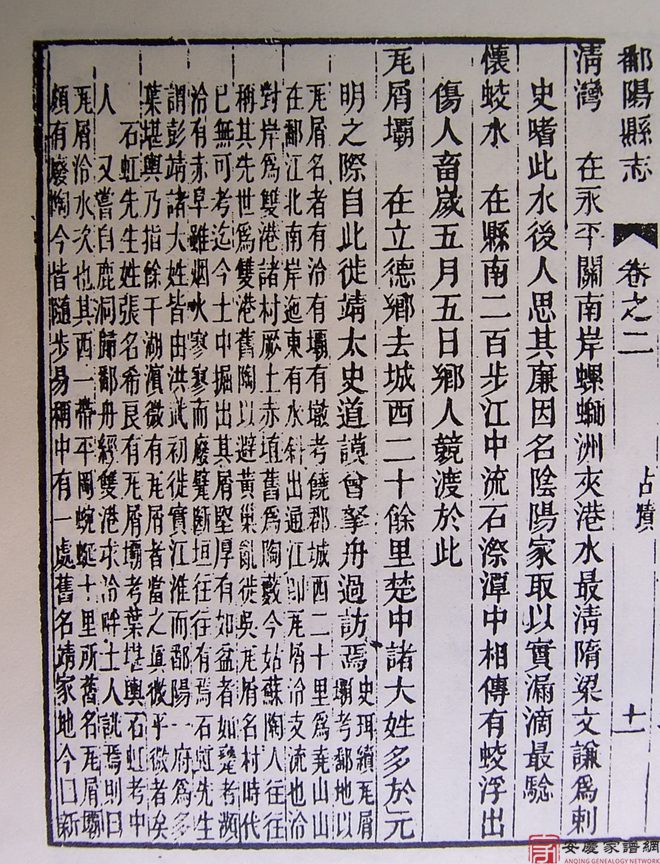 鄱陽縣志 卷之二 古蹟 十一
清灣 在永平關南岸螺螄洲夾港水最清隋梁文謙爲刺
史嗜此水後人思其廉因名陰陽家取以實漏滴最驗
懷蛟水 在縣南二百步江中流石潭中相傳有蛟浮出
傷人畜歲五月五日鄉人競渡於此
瓦屑壩 在立德鄉去城西二十餘里楚中諸大姓多於元
明之際自此徙靖太史道謨曾拏舟過訪焉 史珥續瓦屑
壩考鄱地以
瓦屑名者有洽有壩有墩考饒郡城西二十里爲堯山山
在鄱江北南岸迤東有水斜出通江卽瓦屑洽支流也洽
對岸爲雙港諸村厥土赤埴舊爲陶藪今姑蘇陶人往往
稱其先世爲雙港舊陶以避黃巢亂徙吳瓦屑名村時代
已無可考迄今土中掘出其屑堅厚有如盆者如甓者瀕
洽有赤阜雖烟火寥寥而廢甓斷垣往往有焉石虹先生
謂彭靖諸大姓皆由洪武初徙實江淮而鄱陽一府爲多
葉堪輿乃指餘干湖濱微有瓦屑者當之眞微乎微者矣
石虹先生姓張名希良有瓦屑壩考葉堪輿石虹考中
人 又嘗自鹿洞歸鄱舟經雙港求洽畔土人詵焉則曰
瓦屑洽水次也其西一帶平岡蜿蜒十里所舊名瓦屑壩
頗有廢陶今皆隨步易稱中有一處舊名靖家地今曰新
安慶家譜網
ANQING GENEALOGY NETWORK